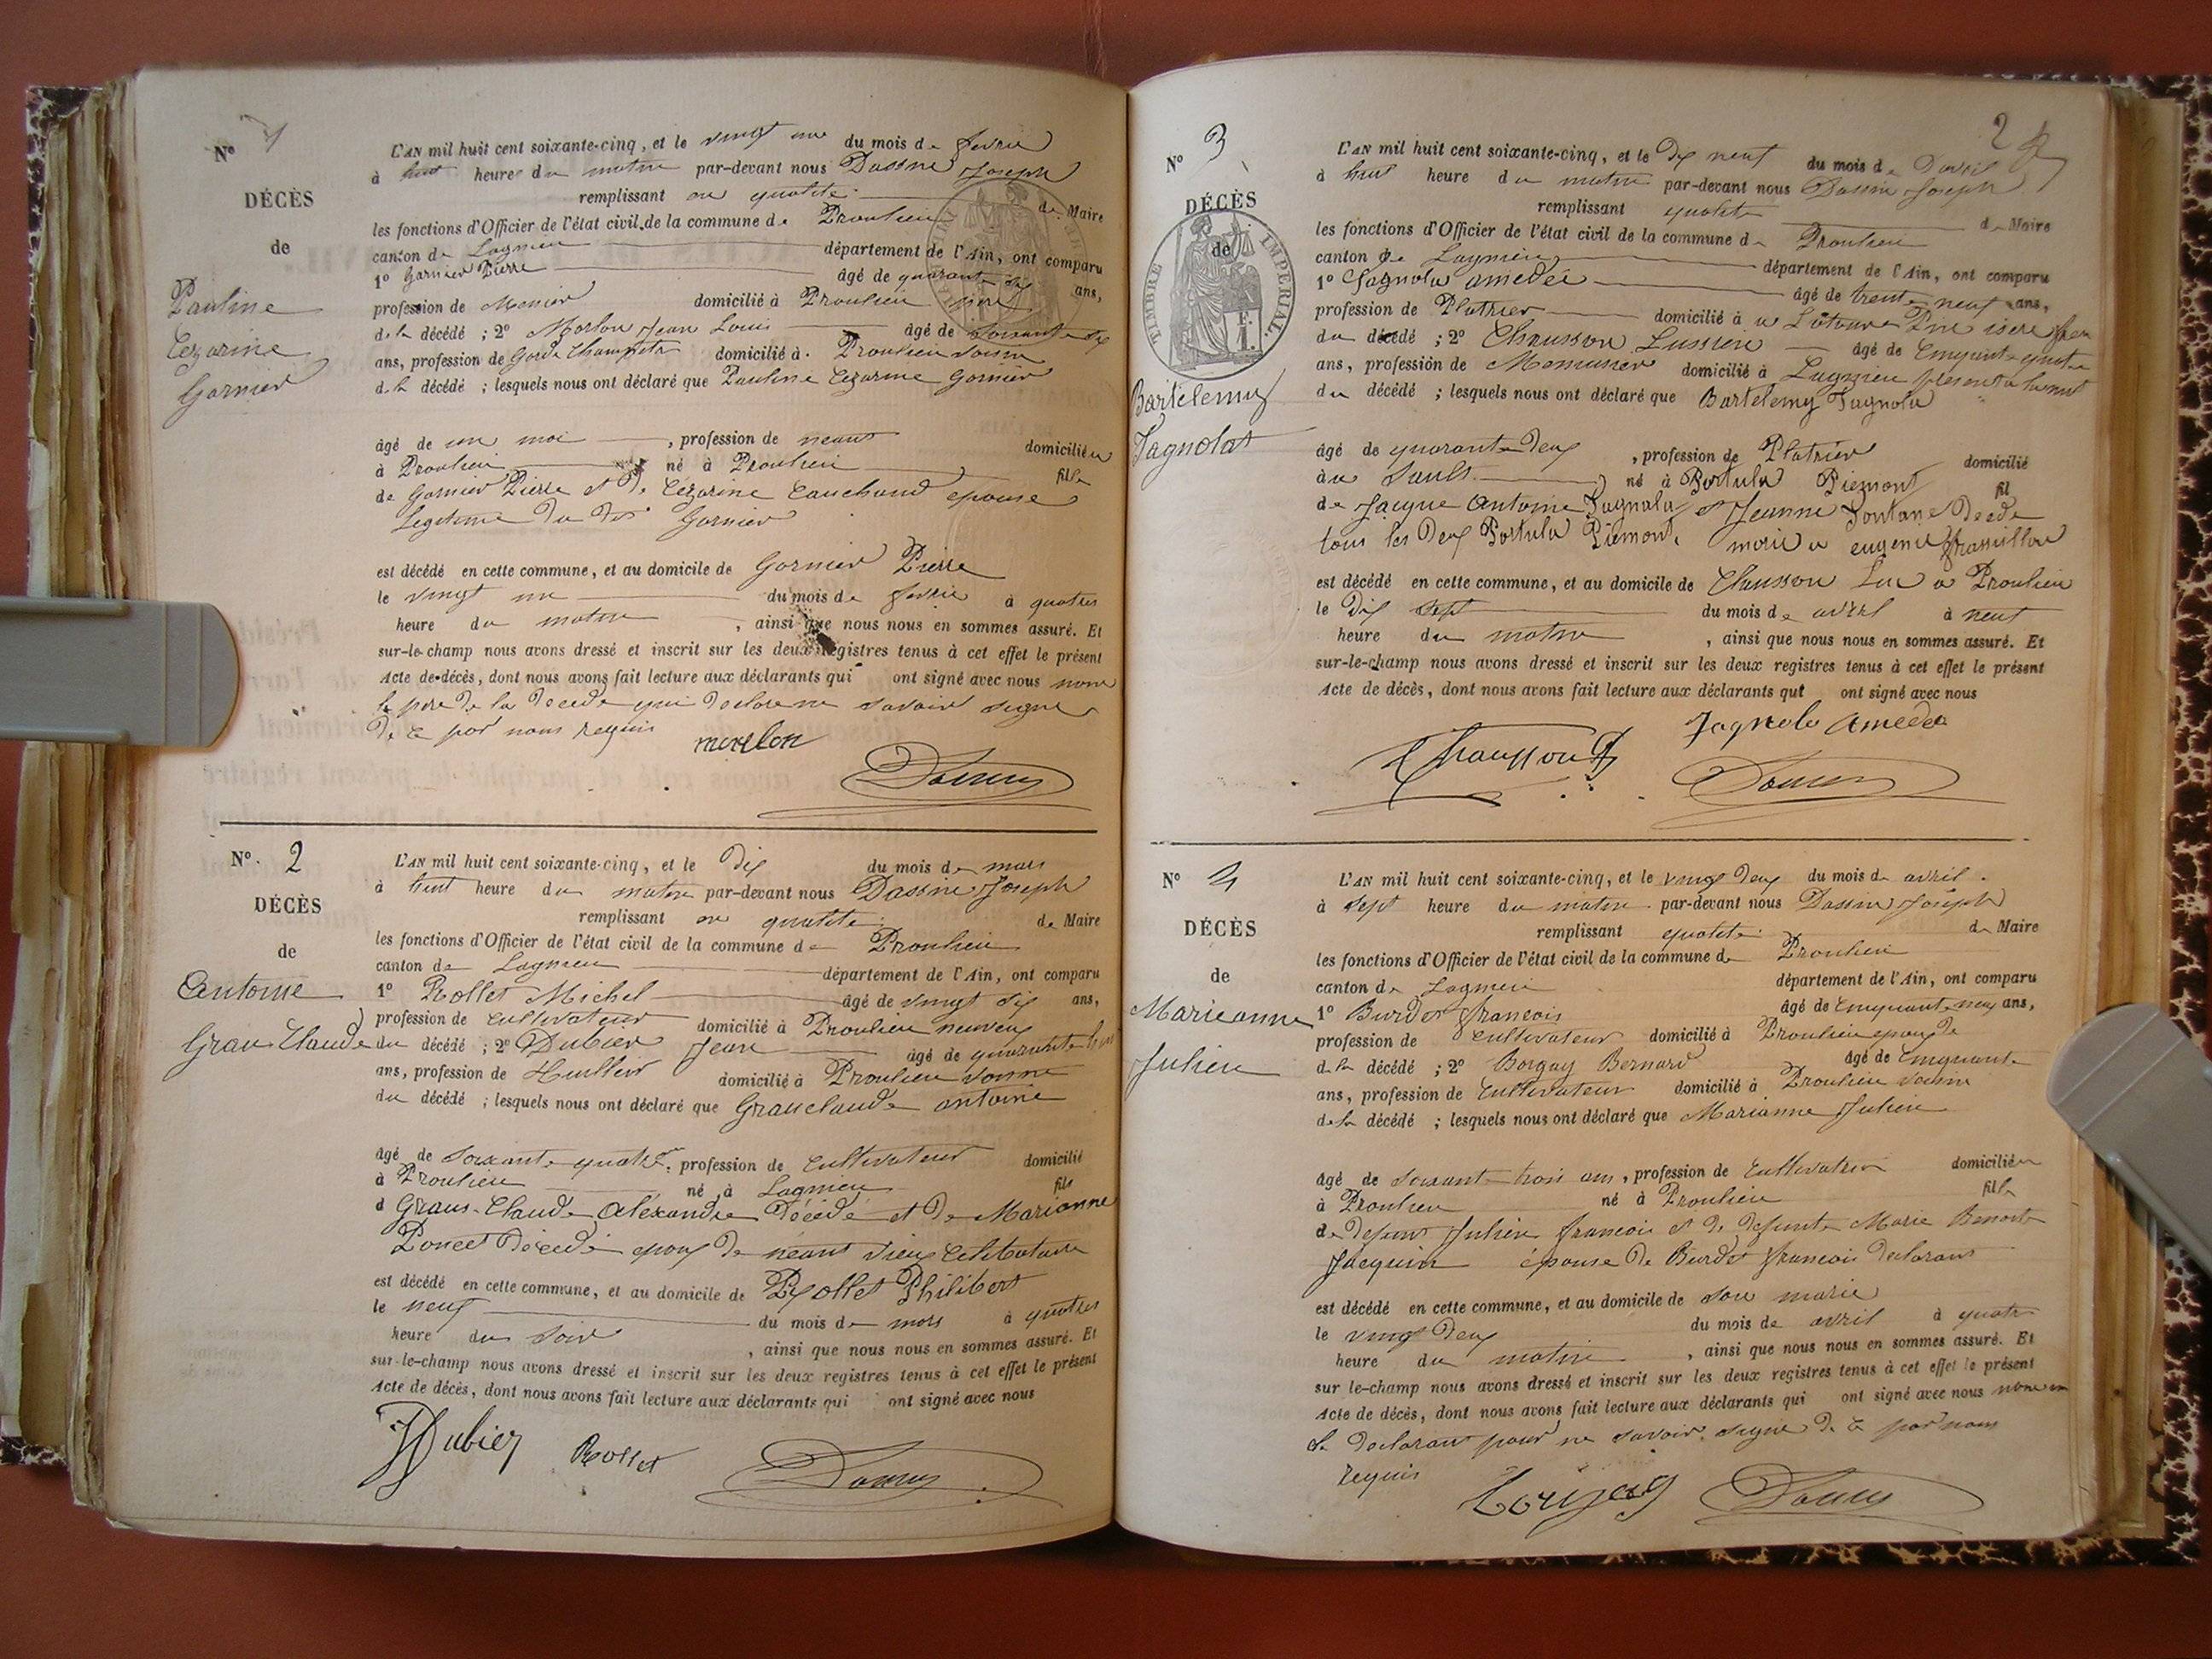 N° 1
DÉCÈS
de
Pauline
Cezarine
Garnier
L'AN mil huit cent soixante-cinq, et le vingt une du mois de fevrie
à huit heure du matin par-devant nous Dassin Joseph
remplissant en qualite de Maire
les fonctions d'Officier de l'état civil de la commune de Proulieu
canton de Lagnieu département de l'Ain, ont comparu
1° Garnier Pierre âgé de quarante six ans,
profession de domicilié à Proulieu pere
de la décédé ; 2° Morlon Jean Louis âgé de soixante six
ans, profession de Garde Champetre domicilié à Proulieu voisin
de la décédé ; lesquels nous ont déclaré que Pauline Cezarine Garnier
âgé de un moi , profession de neant domiciliée
à Proulieu né à Proulieu fille
de Garnier Pierre et de Cezarine Cauchand epouse
Legitime du dit Garnier
est décédé en cette commune, et au domicile de Garnier Pierre
le vingt une du mois de fevrie à quatres
heure du matin , ainsi que nous nous en sommes assuré. Et
sur-le-champ nous avons dressé et inscrit sur les deux registres tenus à cet effet le présent
Acte de décès, dont nous avons fait lecture aux déclarants qui ont signé avec nous non
le pere de la decede qui declare ne savoir signe
de ce par nous requis
morlon
Dassin
N° 2
DÉCÈS
de
Antoine
Gran-Claude
L'AN mil huit cent soixante-cinq, et le Dix du mois de mars
à huit heure du matin par-devant nous Dassin Joseph
remplissant en qualite de Maire
les fonctions d'Officier de l'état civil de la commune de Proulieu
canton de Lagnieu département de l'Ain, ont comparu
1° Rollet Michel âgé de vingt six ans,
profession de cultivateur domicilié à Proulieu neuveu
du décédé ; 2° Dubier Jean âgé de quarante
ans, profession de Huillier domicilié à Proulieu voisin
du décédé ; lesquels nous ont déclaré que Granclaude antoine
âgé de soixante quatre , profession de cultivateur domicilié
à Proulieu né à Lagnieu fils
d Grans-Claude Alexandre décédé et de Marianne
Poncet décédé epoux de néant vieux Celibataire
est décédé en cette commune, et au domicile de Rollet Philibert
le neuf du mois de mars à quatres
heure du soir , ainsi que nous nous en sommes assuré. Et
sur-le-champ nous avons dressé et inscrit sur les deux registres tenus à cet effet le présent
Acte de décès, dont nous avons fait lecture aux déclarants qui ont signé avec nous
JDubier Rollet Dassin
2
N° 3
DÉCÈS
de
TIMBRE IMPERIAL
Bartelemy
Jagnolat
L'AN mil huit cent soixante-cinq, et le Dix neuf du mois d'avril
à huit heure du matin par-devant nous Dassin Joseph
remplissant qualite de Maire
les fonctions d'Officier de l'état civil de la commune de Proulieu
canton de Lagnieu département de l'Ain, ont comparu
1° Jagnola amedée âgé de trente neuf ans,
profession de Platrier domicilié à a Latour Pin isere
du décédé ; 2° Chausson Lussien âgé de Cinquante quatre
ans, profession de Menuisier domicilié à Lagnieu
du décédé ; lesquels nous ont déclaré que Bartelemy Jagnola
âgé de quarante Deux , profession de Platrier domicilié
àu Sault né à Postula Piemont fil
de Jacque Antoine Jagnola et Jeanne Fontane Decede
tous les Deux Postula Piemont. marié a eugenie
est décédé en cette commune, et au domicile de Chausson Luc a Proulieu
le Dix sept du mois de avril à neuf
heure du matin , ainsi que nous nous en sommes assuré. Et
sur-le-champ nous avons dressé et inscrit sur les deux registres tenus à cet effet le présent
Acte de décès, dont nous avons fait lecture aux déclarants qui ont signé avec nous
Jagnola Amedee
Chausson
Dassin
N° 4
DÉCÈS
de
Marieanne
Julien
L'AN mil huit cent soixante-cinq, et le vingt Deux du mois de avril.
à sept heure du matin par-devant nous Dassin Joseph
remplissant qualite de Maire
les fonctions d'Officier de l'état civil de la commune de Proulieu
canton de Lagnieu département de l'Ain, ont comparu
1° Burdet francois âgé de Cinquante neuf ans,
profession de cultivateur domicilié à Proulieu epoux de
de la décédé ; 2° Borgay Bernard âgé de Cinquante
ans, profession de Cultivateur domicilié à Proulieu voisin
de la décédé ; lesquels nous ont déclaré que Marianne Julien
âgé de soixante trois ans , profession de Cultivatrice domiciliée
à Proulieu né à Proulieu fille
de defunt Julien francois et de defunte Marie Benoite
Jacquin épouse de Burdet francois declarant
est décédé en cette commune, et au domicile de son marie
le vingt Deux du mois de avril à quatre
heure du matin , ainsi que nous nous en sommes assuré. Et
sur le-champ nous avons dressé et inscrit sur les deux registres tenus à cet effet le présent
Acte de décès, dont nous avons fait lecture aux déclarants qui ont signé avec nous
le declarant pour ne savoir signe de ce par nous
requis
Dassin